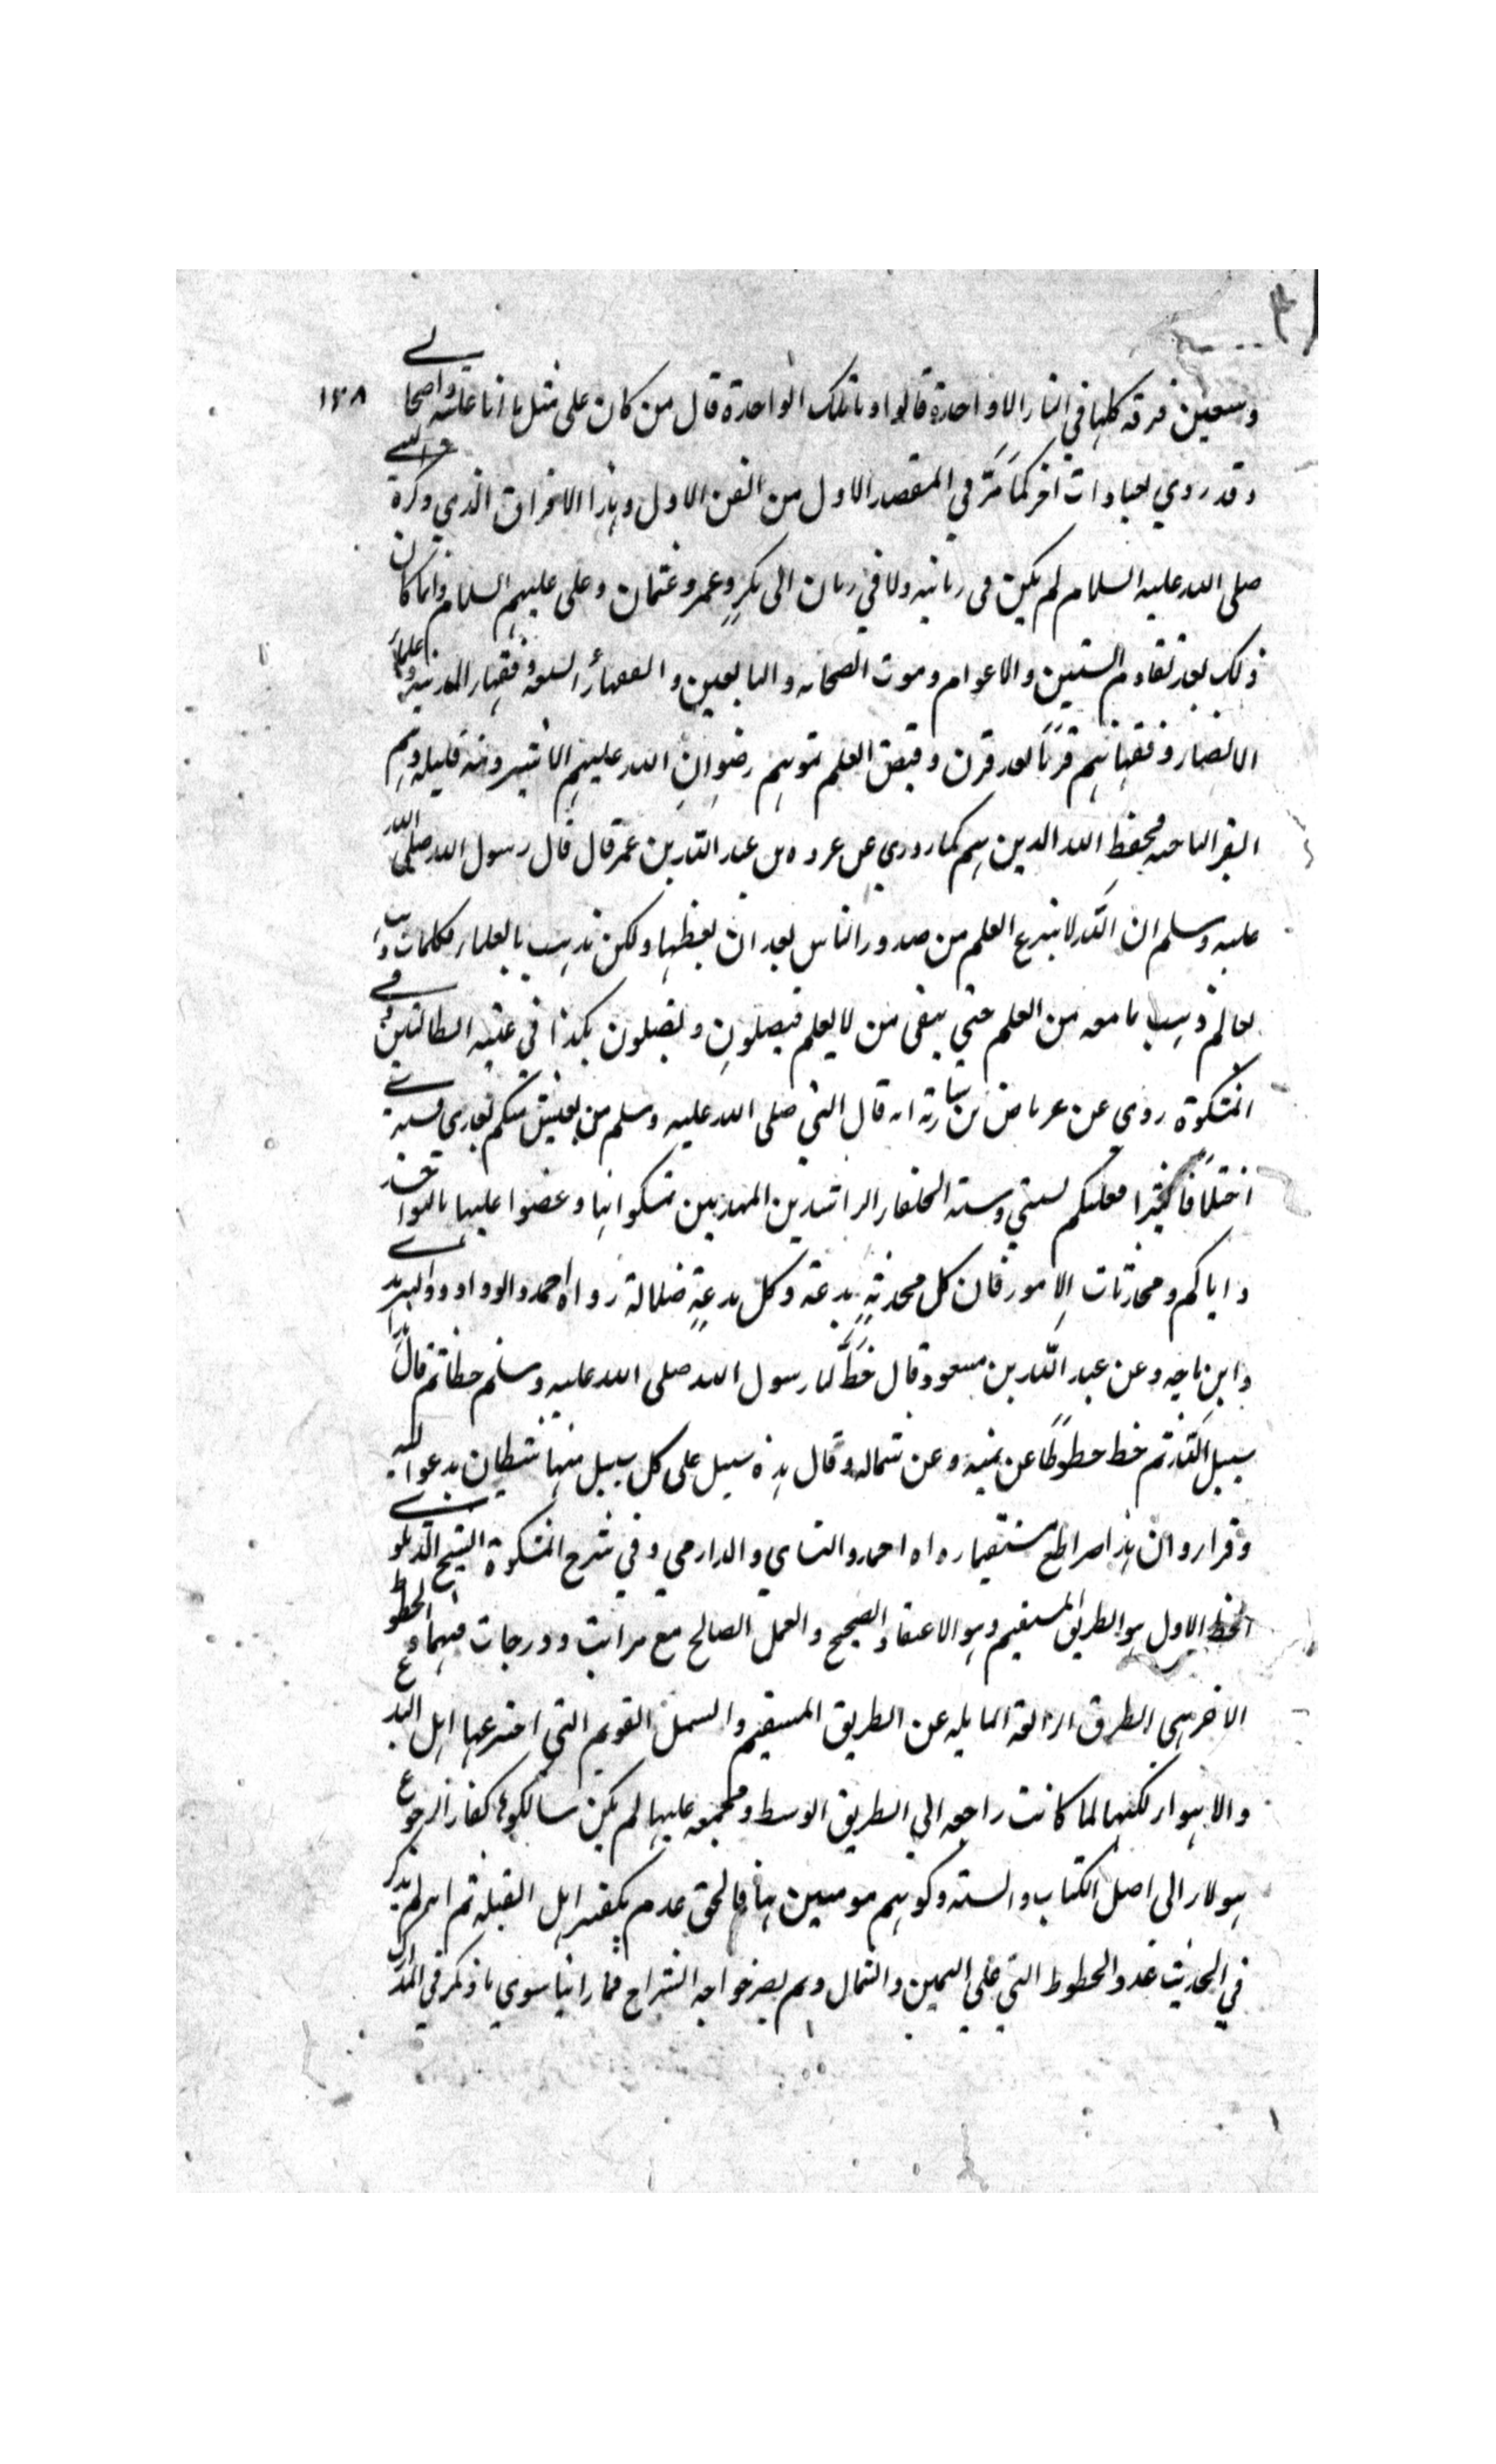 ١٢٨
وسبعين فرقه كلها في النار الا واحدة قالوا وما تلك الواحدة قال من كان على مثل ما انا عليه واصحابي
وقد روي بعبادات اخر كما مَرَّ في المقصد الاول من الفن الاول وهذا الافتراق الذي ذكره النبي
صلى الله عليه السلام لم يكن في زمانه ولا في زمان ابي بكرٍ وعمر وعثمان وعلى عليهم السلام وانما كان
ذلك بعد تقادم السنين والاعوام وموت الصحابه والتابعين والفقهاء السبعه وفقهاء المدينه وعلماء
الانصار وفقهائهم قرنًا بعد قرن وقبض العلم بموتهم رضوان الله عليهم الا شرذمة قليله وهم
الناجيه فحفظ الله الدين بهم كما روي عن عروه بن عبد الله بن عمر قال قال رسول الله صلى الله
عليه وسلم ان الله لا ينزع العلم من صدور الناس بعد ان يعطيها ولكن تذهب بالعلماء فكلما ذهب
بعالم ذهب بما معه من العلم حتى يبقى من لا يعلم فيضلون ويضلون هكذا في غنيه الطالبين وفي
المشكوة روى عن عرباض بن سارية انه قال النبي صلى الله عليه وسلم من يعيش منكم بعدي فسيرى
اختلافًا كثيرا فعليكم بسنتي وسنة الخلفاء الراشدين المهديين تمسكوا بها وعضوا عليها بالنواجذ
واياكم ومحدثات الامور فان كل محدثةٍ بدعة وكل بدعةٍ ضلالة رواه احمد وابو داود والترمذي
وابن ماجه وعن عبد الله بن مسعود قال خَطَّ لنا رسول الله صلى الله عليه وسلم خطا ثم قال هذا
سبيل الله ثم خط خطوطًا عن يمينه وعن شماله وقال هذه سبيل على كل سبيل منها شيطان يدعو اليه
وقرا وان هذا صراطي مستقيما رواه احمد والنسائي والدارمي وفي شرح المشكوة الشيخ الدهلوي
الخط الاول هو الطريق المستقيم وهو الاعتقاد الصحيح والعمل الصالح مع مراتب ودرجات فيهما والخطوط
الاخر هي الطرق الزائغة المايله عن الطريق المستقيم والسبيل القويم التي اخترعها اهل البدع
والاهواء لكنها لما كانت راجعه الى الطريق الوسط ومجتمعه عليها لم يكن سالكوها كفار الرجوع
هولاء الى اصل الكتاب والسنة وكونهم مومنين بها فالحق عدم تكفير اهل القبلة ثم انه لم يذكر
في الحديث عدد الخطوط التي على اليمين والشمال ولم يصرحوا به الشراح فما راينا سوى ما ذكر في المدارك